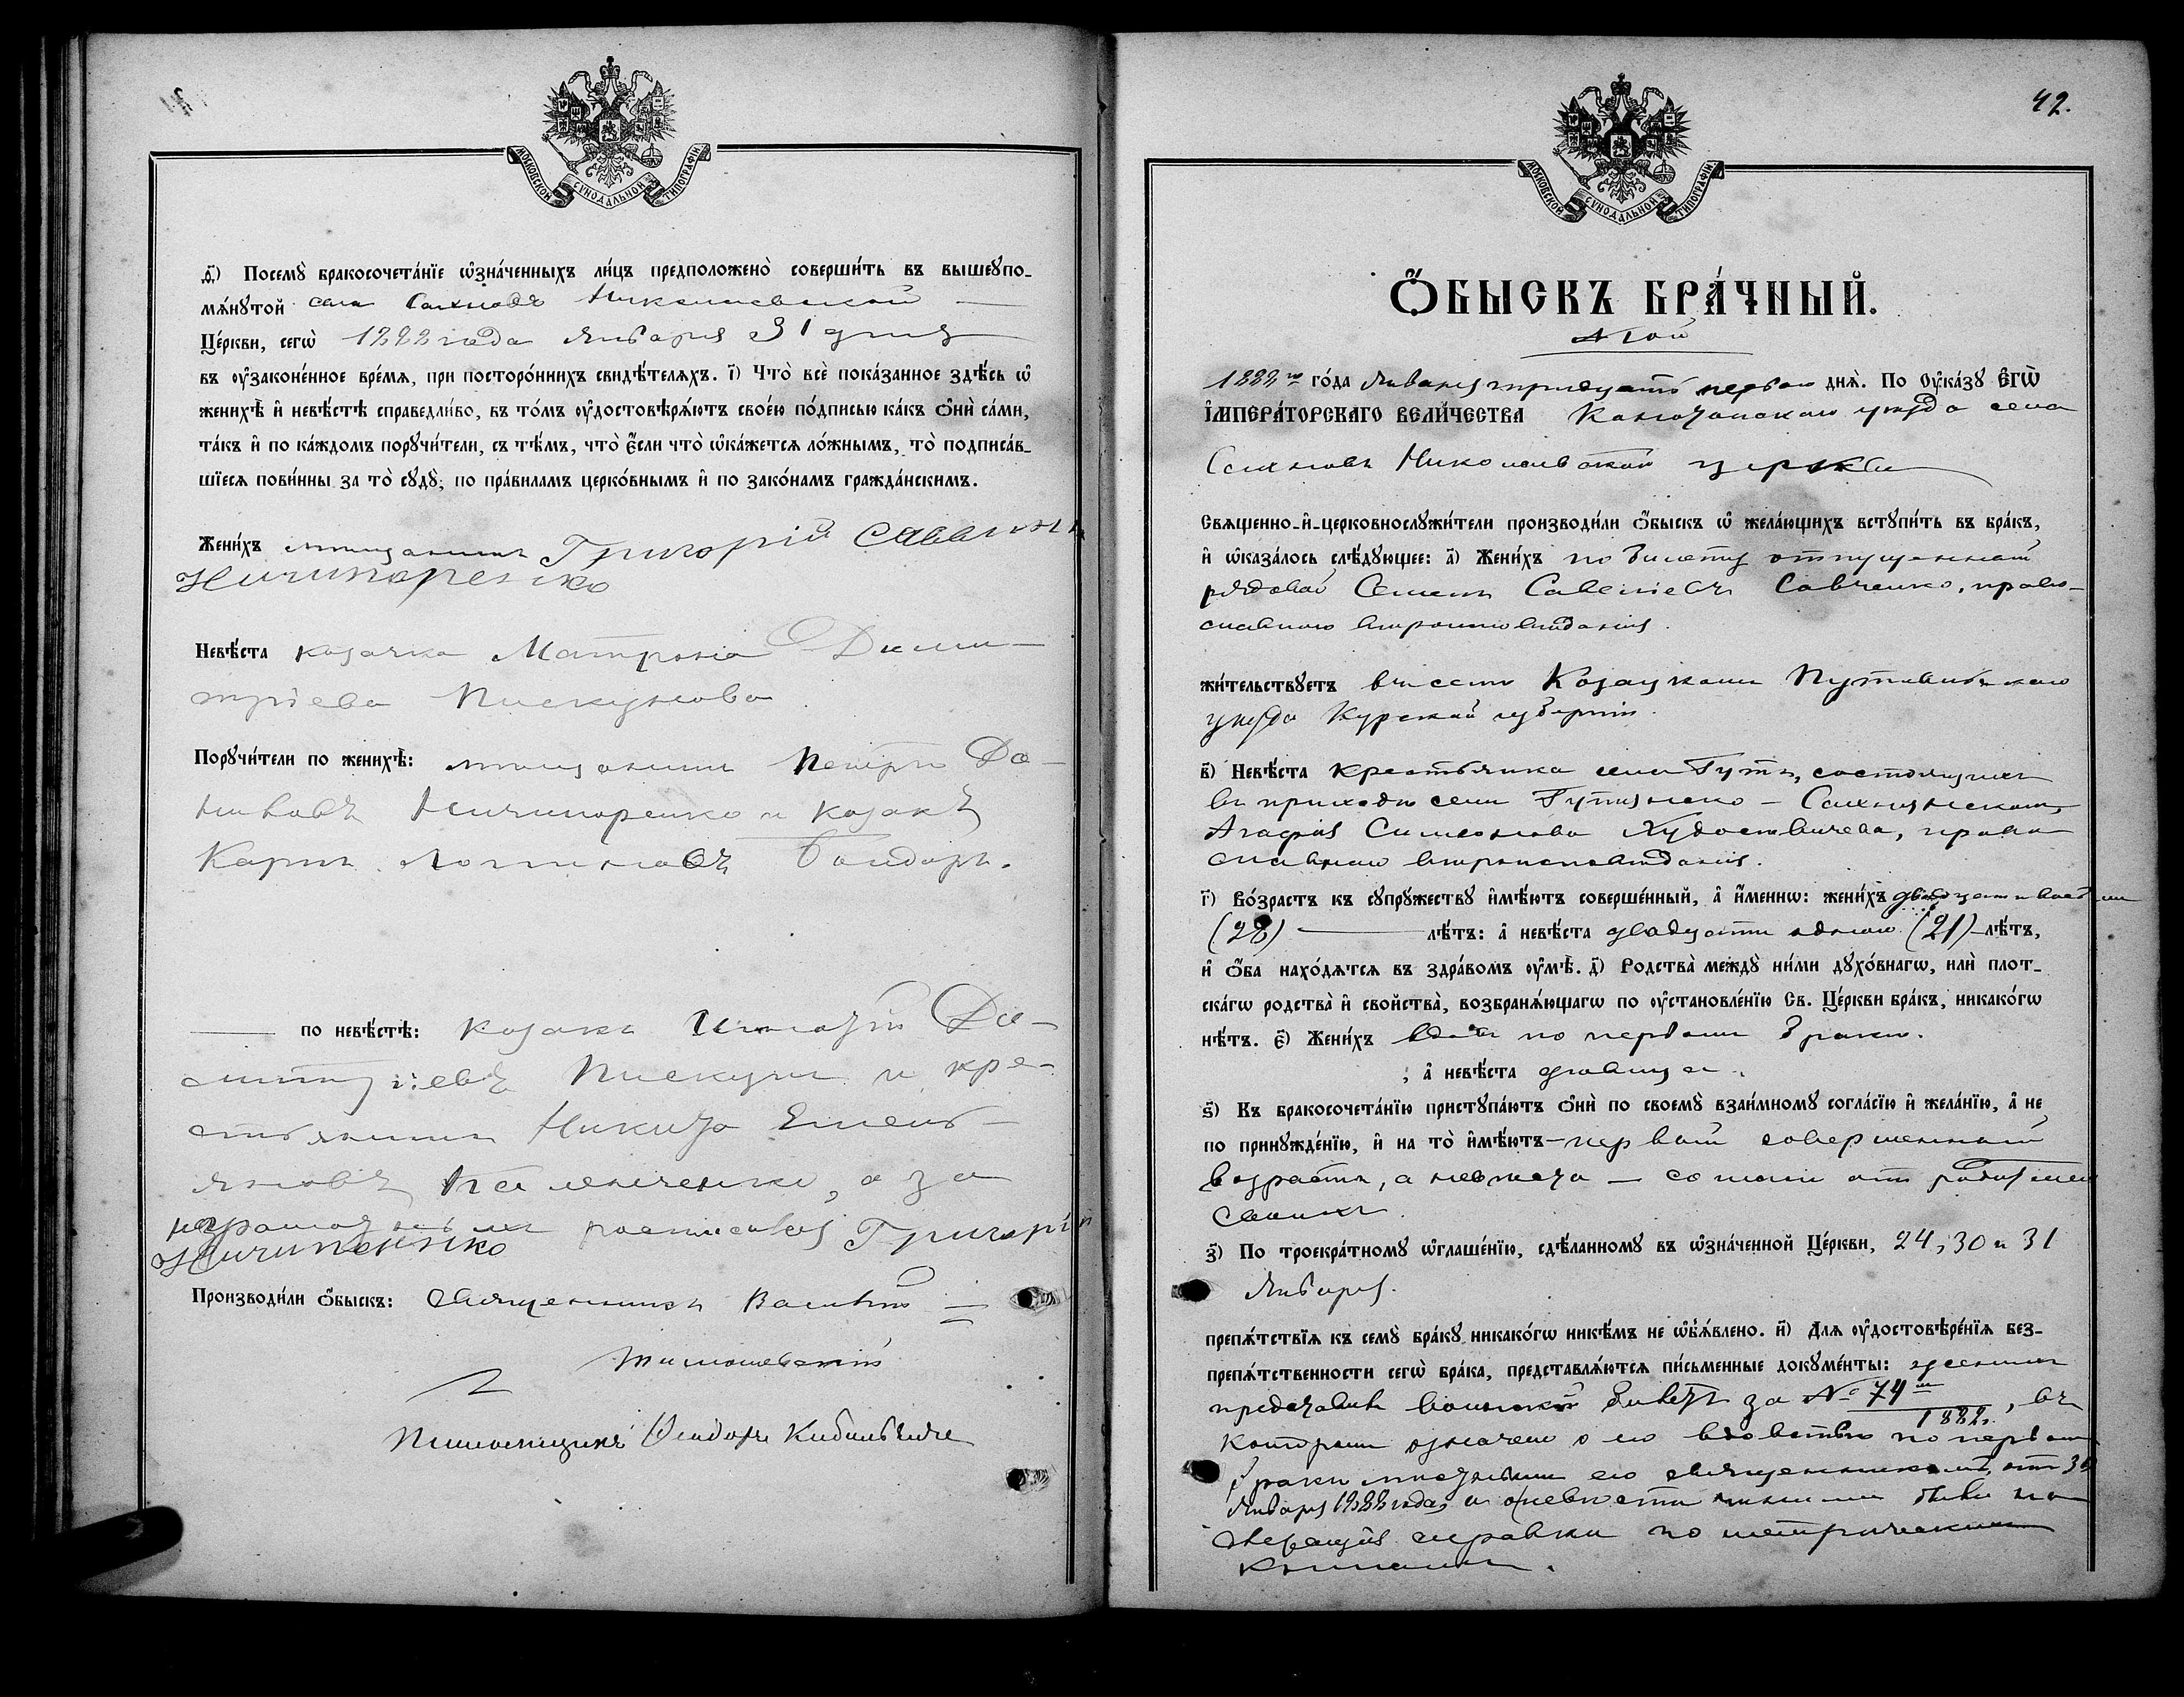 МОСКОВСКОЙ СѴНОДАЛЬНОЙ ТИПОГРАФІИ
ѳ҃) Посемꙋ̀ бракосочета́нїе ѡ҆зна́ченныхъ ли́цъ предположено̀ соверши́ть въ вышеꙋпо-
мѧ́нꙋтой села Сахновъ Николаевской
Це́ркви, сегѡ̀ 1882 года января 31 дня
въ оу҆законе́нное вре́мѧ, при посторо́ннихъ свидѣ́телѧхъ. і҃) Что̀ всѐ пока́занное здѣ́сь ѡ҆
женихѣ̀ и҆ невѣ́стѣ справедли́во, въ то́мъ оу҆достовѣрѧ́ютъ свое́ю по́дписью ка́къ ѻ҆нѝ са́ми,
та́къ и҆ по ка́ждомъ порꙋчи́тели, съ тѣ́мъ, что̀ є҆́сли что̀ ѡ҆ка́жется ло́жнымъ, то̀ подписа́в-
шїесѧ пови́нны за то̀ сꙋдꙋ̀, по пра́виламъ церко́внымъ и҆ по зако́намъ гражда́нскимъ.
Жени́хъ мещанинъ Григорій Саввинъ
Ничипоренко
Невѣ́ста козачка Матрона Дими-
тріева Пискунова
Порꙋчи́тели по женихѣ̀: мещанинъ Петръ Да-
ниловъ Ничипоренко и козакъ
Карпъ Логиновъ Бондарь.
по невѣ́стѣ: козакъ Ди-
митріевъ Пискунъ и кре-
стьянинъ Никита Емель-
яновъ а за
неграмотныхъ росписался Григорій
Ничипоренко
Производи́ли ѻ҆́быскъ: Священникъ Василій
Тимошевскій
Псаломщикъ Ѳеодоръ
42.
МОСКОВСКОЙ СѴНОДАЛЬНОЙ ТИПОГРАФІИ
Ѻ҆́БЫСКЪ БРА́ЧНЫЙ.
1882го го́да января тридцать перваго днѧ̀. По Оу҆ка́зꙋ Є҆ГѠ̀
І҆МПЕРА́ТОРСКАГО ВЕЛИ́ЧЕСТВА Конотопскаго уѣзда села
Сахновъ Николаевской церкви
Свѧщенно-и҆-церковнослꙋжи́тели производи́ли ѻ҆́быскъ ѡ҆ жела́ющихъ встꙋпи́ть въ бра́къ,
и҆ ѡ҆каза́лось слѣ́дꙋющее: а҃) Жени́хъ по билету отпущенный
рядовой Семенъ Савеліевъ Савченко, право-
славнаго вѣроисповѣданія.
жи́тельствꙋетъ въ селѣ Козацкомъ Путивльскаго
уѣзда Курской губерніи.
в҃) Невѣ́ста крестьянка села Гуты, состоящихъ
въ приходѣ села Гутянско-Сахновскаго,
Агафія Симеонова право-
славнаго вѣроисповѣданія.
г҃) Во́зрастъ къ сꙋпрꙋ́жествꙋ и҆мѣ́ютъ соверше́нный, а҆ и҆́меннѡ: жени́хъ двадцати восьми
(28) лѣ́тъ: а҆ невѣ́ста двадцати одного (21) лѣ́тъ,
и҆ ѻ҆́ба нахо́дѧтсѧ въ здра́вомъ оу҆мѣ̀. д҃) Родства̀ междꙋ̀ ни́ми дꙋхо́внагѡ, илѝ плот-
ска́гѡ родства̀ и҆ сво́йства̀, возбранѧ́ющагѡ по оу҆становле́нїю Св. Це́ркви бра́къ, никако́гѡ
нѣ́тъ. є҃) Жени́хъ вдовъ по первомъ бракѣ.
, а҆ невѣ́ста дѣвица.
ѕ҃) Къ бракосочета́нїю пристꙋпа́ютъ ѻ҆нѝ по своемꙋ̀ взаи́мномꙋ согла́сїю и҆ жела́нїю, а҆ не
по принꙋжде́нїю, и҆ на то̀ и҆мѣ́ютъ — первый совершенный
возрастъ, а невѣста — отъ родителей
своихъ.
з҃) По троекра́тномꙋ ѡ҆глаше́нїю, сдѣ́ланномꙋ въ ѡ҆зна́ченной Це́ркви, 24, 30 и 31
января.
препѧ́тствїѧ къ семꙋ̀ бра́кꙋ никако́гѡ никѣ́мъ не ѡ҆б̾ѧ́влено. и҃) Длѧ оу҆достовѣре́нїѧ без-
препѧ́тственности сегѡ̀ бра́ка, представлѧ́ютсѧ пи́сьменные докꙋме́нты: женихъ
представилъ воинскій билетъ за № 74м 1882, въ
которомъ означено о его вдовствѣ по первомъ
бракѣ мѣстнымъ его священникомъ, отъ 30
января 1882 года, а о невѣстѣ
справки по метрическимъ
книгамъ.